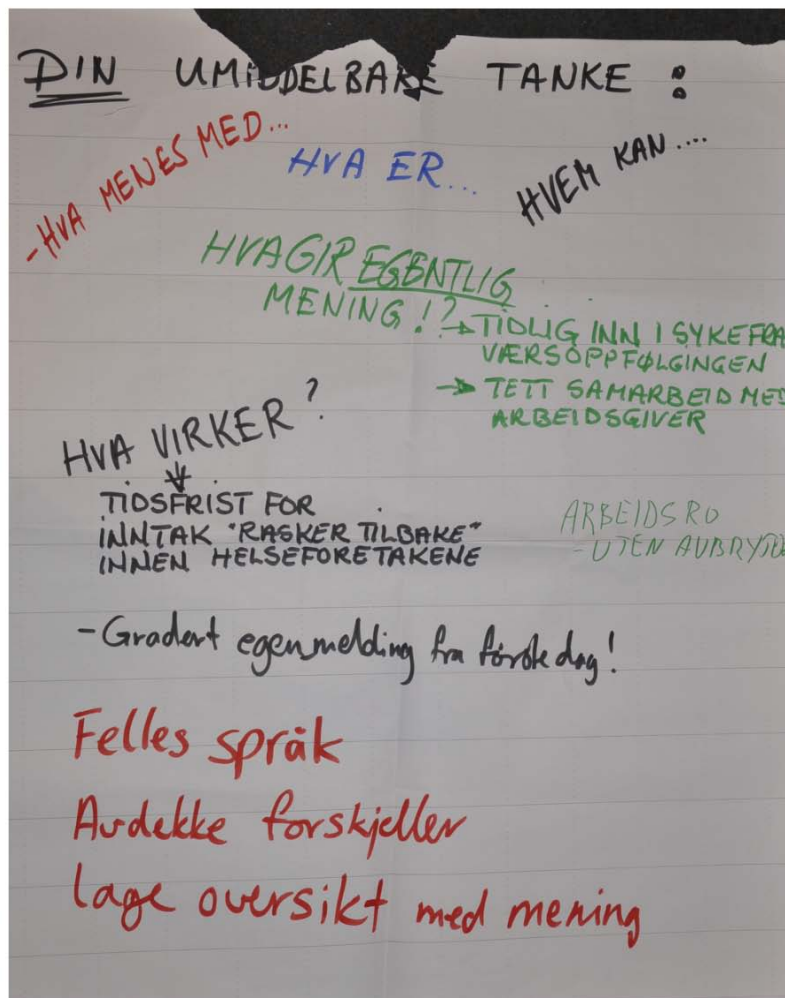 DIN UMIDDELBARE TANKE :
- HVA MENES MED...
HVA ER...
HVEM KAN....
HVA GIR EGENTLIG
MENING !?
→ TIDLIG INN I SYKEFRA
VÆRSOPPFØLGINGEN
→ TETT SAMARBEID MED
ARBEIDSGIVER
HVA VIRKER ?
TIDSFRIST FOR
INNTAK "RASKER TILBAKE"
INNEN HELSEFORETAKENE
ARBEIDSRO
- UTEN
- Gradert egenmelding fra første dag!
Felles språk
Avdekke forskjeller
Lage oversikt med mening